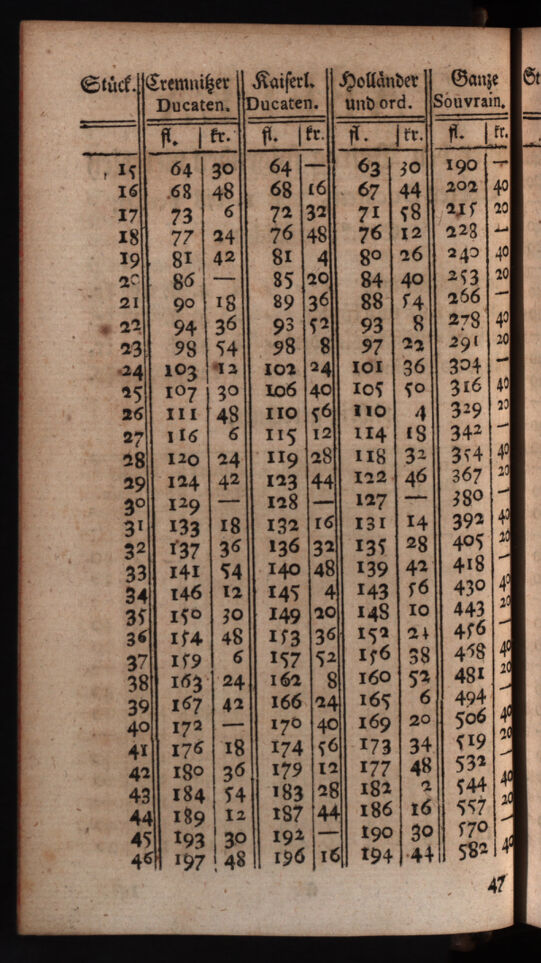 Stück. Cremnitzer Kaiserl. Holländer Ganze
Ducaten. Ducaten. und ord. Souvrain.
fl. kr. fl. kr. fl. kr. fl. kr.
15 64 30 64 — 63 30 190 —
16 68 48 68 16 67 44 202 40
17 73 6 72 32 71 58 215 20
18 77 24 76 48 76 12 228 —
19 81 42 81 4 80 26 240 40
20 86 — 85 20 84 40 253 20
21 90 18 89 36 88 54 266 —
22 94 36 93 52 93 8 278 40
23 98 54 98 8 97 22 291 20
24 103 12 102 24 101 36 304 —
25 107 30 106 40 105 50 316 40
26 111 48 110 56 110 4 329 20
27 116 6 115 12 114 18 342 —
28 120 24 119 28 118 32 354 40
29 124 42 123 44 122 46 367 20
30 129 — 128 — 127 — 380 —
31 133 18 132 16 131 14 392 40
32 137 36 136 32 135 28 405 20
33 141 54 140 48 139 42 418 —
34 146 12 145 4 143 56 430 40
35 150 30 149 20 148 10 443 20
36 154 48 153 36 152 24 456 —
37 159 6 157 52 156 38 468 40
38 163 24 162 8 160 52 481 20
39 167 42 166 24 165 6 494 —
40 172 — 170 40 169 20 506 40
41 176 18 174 56 173 34 519 20
42 180 36 179 12 177 48 532 —
43 184 54 183 28 182 2 544 40
44 189 12 187 44 186 16 557 20
45 193 30 192 — 190 30 570 —
46 197 48 196 16 194 44 582 40
47